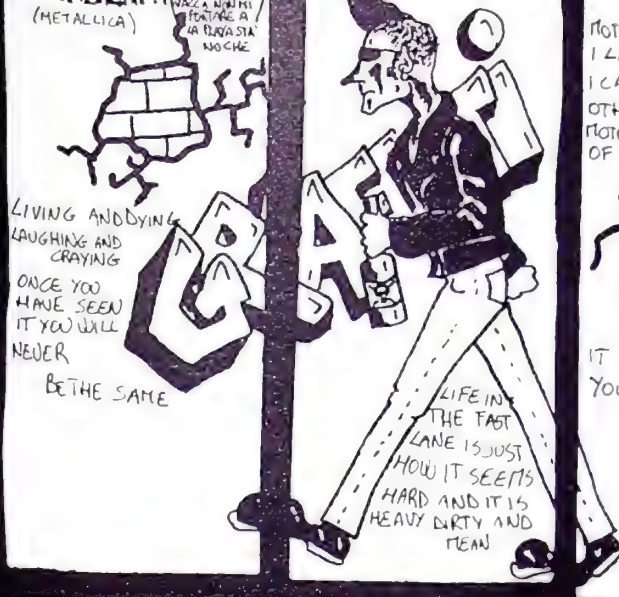 (METALLICA)
PORTARE A
LA PLAYA STA
NOCHE
LIVING AND DYING
LAUGHING AND
CRAYING
ONCE YOU
HAVE SEEN
IT YOU WILL
NEVER
BE THE SAME
GRAF
LIFE IN
THE FAST
LANE IS JUST
HOW IT SEEMS
HARD AND IT IS
HEAVY DIRTY AND
MEAN
I
OF
IT